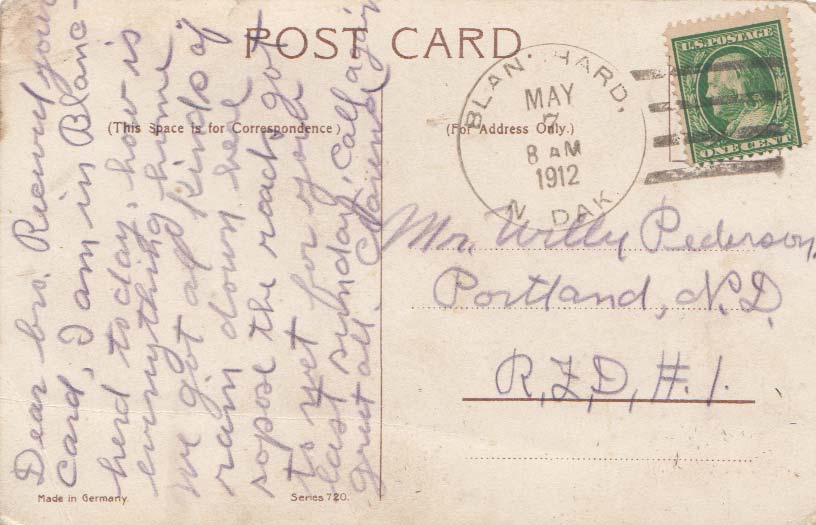 POST CARD
(This Space is for Correspondence.)
(For Address Only.)
BLANCHARD,
MAY
7
8 AM
1912
N. DAK.
U.S. POSTAGE
ONE CENT
Dear bro. Recived your
card, I am in Blanc-
herd to day, how is
evnything home
we got all kinds of
rain down heae
sopose the roads got
to wet for you
last sunday, call again
greet all. Clarence
Mr. Willy Pederson,
Portland, N.D.
R,F,D, #. 1.
Made in Germany.
Series 720.